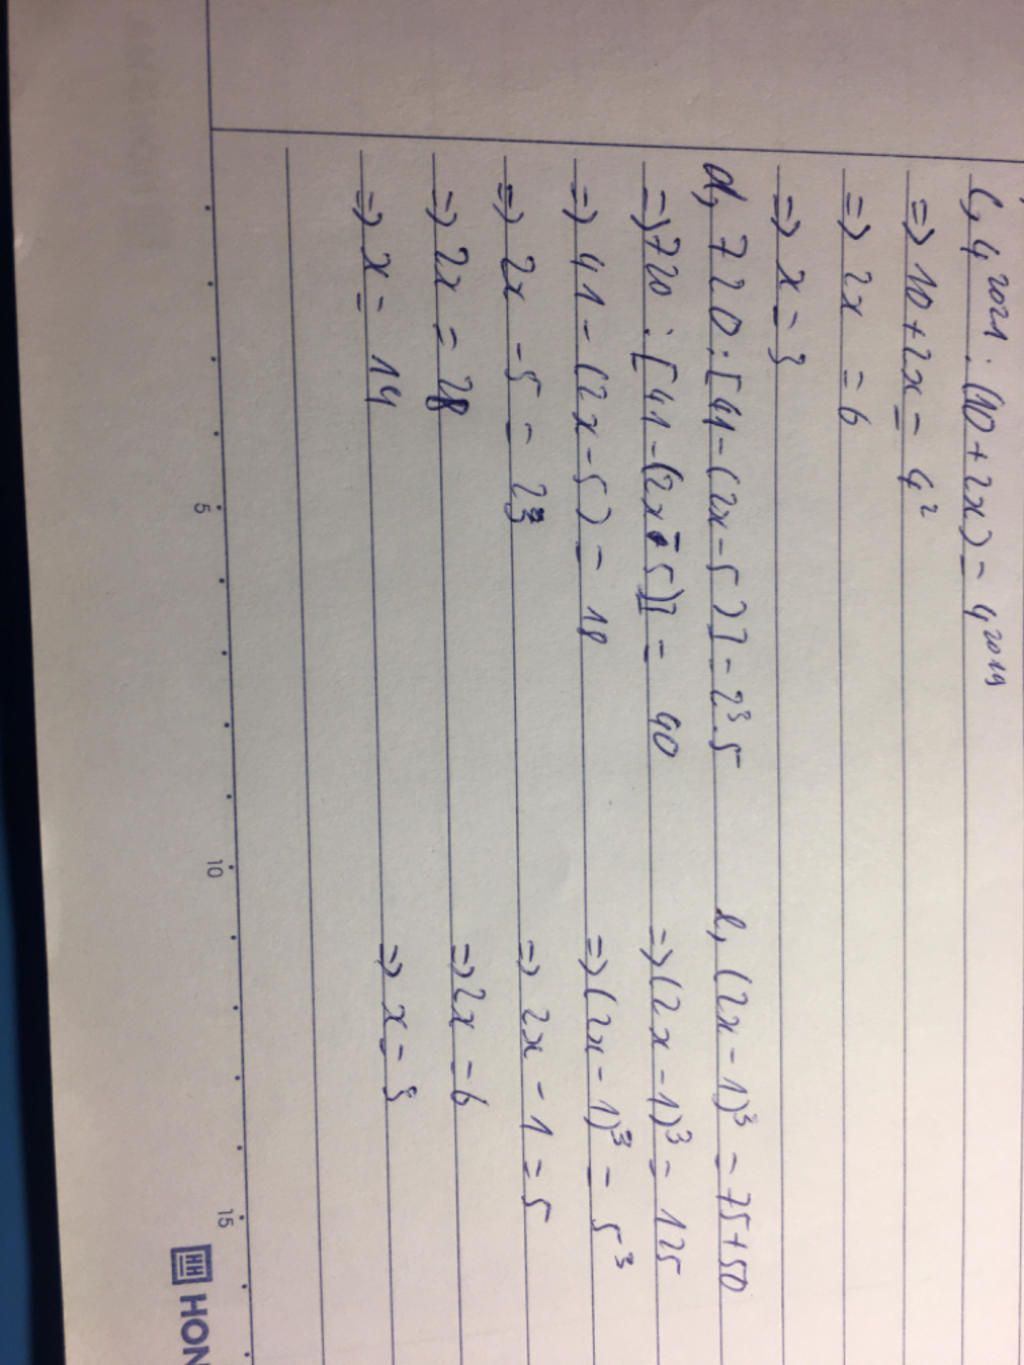 c, 4²⁰²¹ : (10 + 2x) = 4²⁰¹⁹
=> 10 + 2x = 4²
=> 2x = 6
=> x = 3
d, 720 : [41 - (2x - 5)] = 2³.5
=> 720 : [41 - (2x - 5)] = 40
=> 41 - (2x - 5) = 18
=> 2x - 5 = 23
=> 2x = 28
=> x = 14
e, (2x - 1)³ = 75 + 50
=> (2x - 1)³ = 125
=> (2x - 1)³ = 5³
=> 2x - 1 = 5
=> 2x = 6
=> x = 3
5 10 15
HH HON